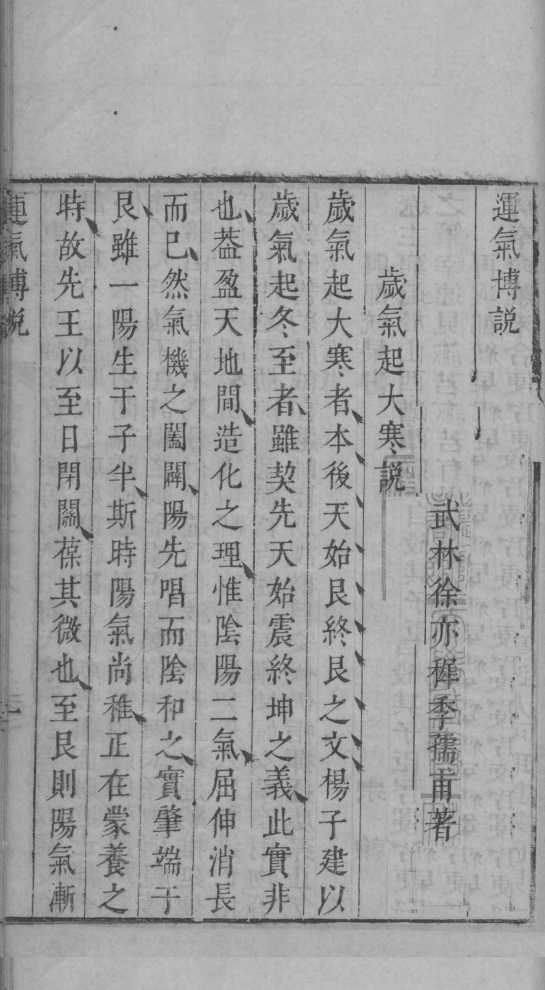 運氣博說
武林徐亦穉季孺甫著
歲氣起大寒說
歲氣起大寒者本後天始艮終艮之文楊子建以
歲氣起冬至者雖契先天始震終坤之義此實非
也葢盈天地間造化之理惟陰陽二氣屈伸消長
而已然氣機之闔闢陽先唱而陰和之實肇端于
艮雖一陽生于子半斯時陽氣尚稚正在蒙養之
時故先王以至日閉關葆其微也至艮則陽氣漸
運氣博說